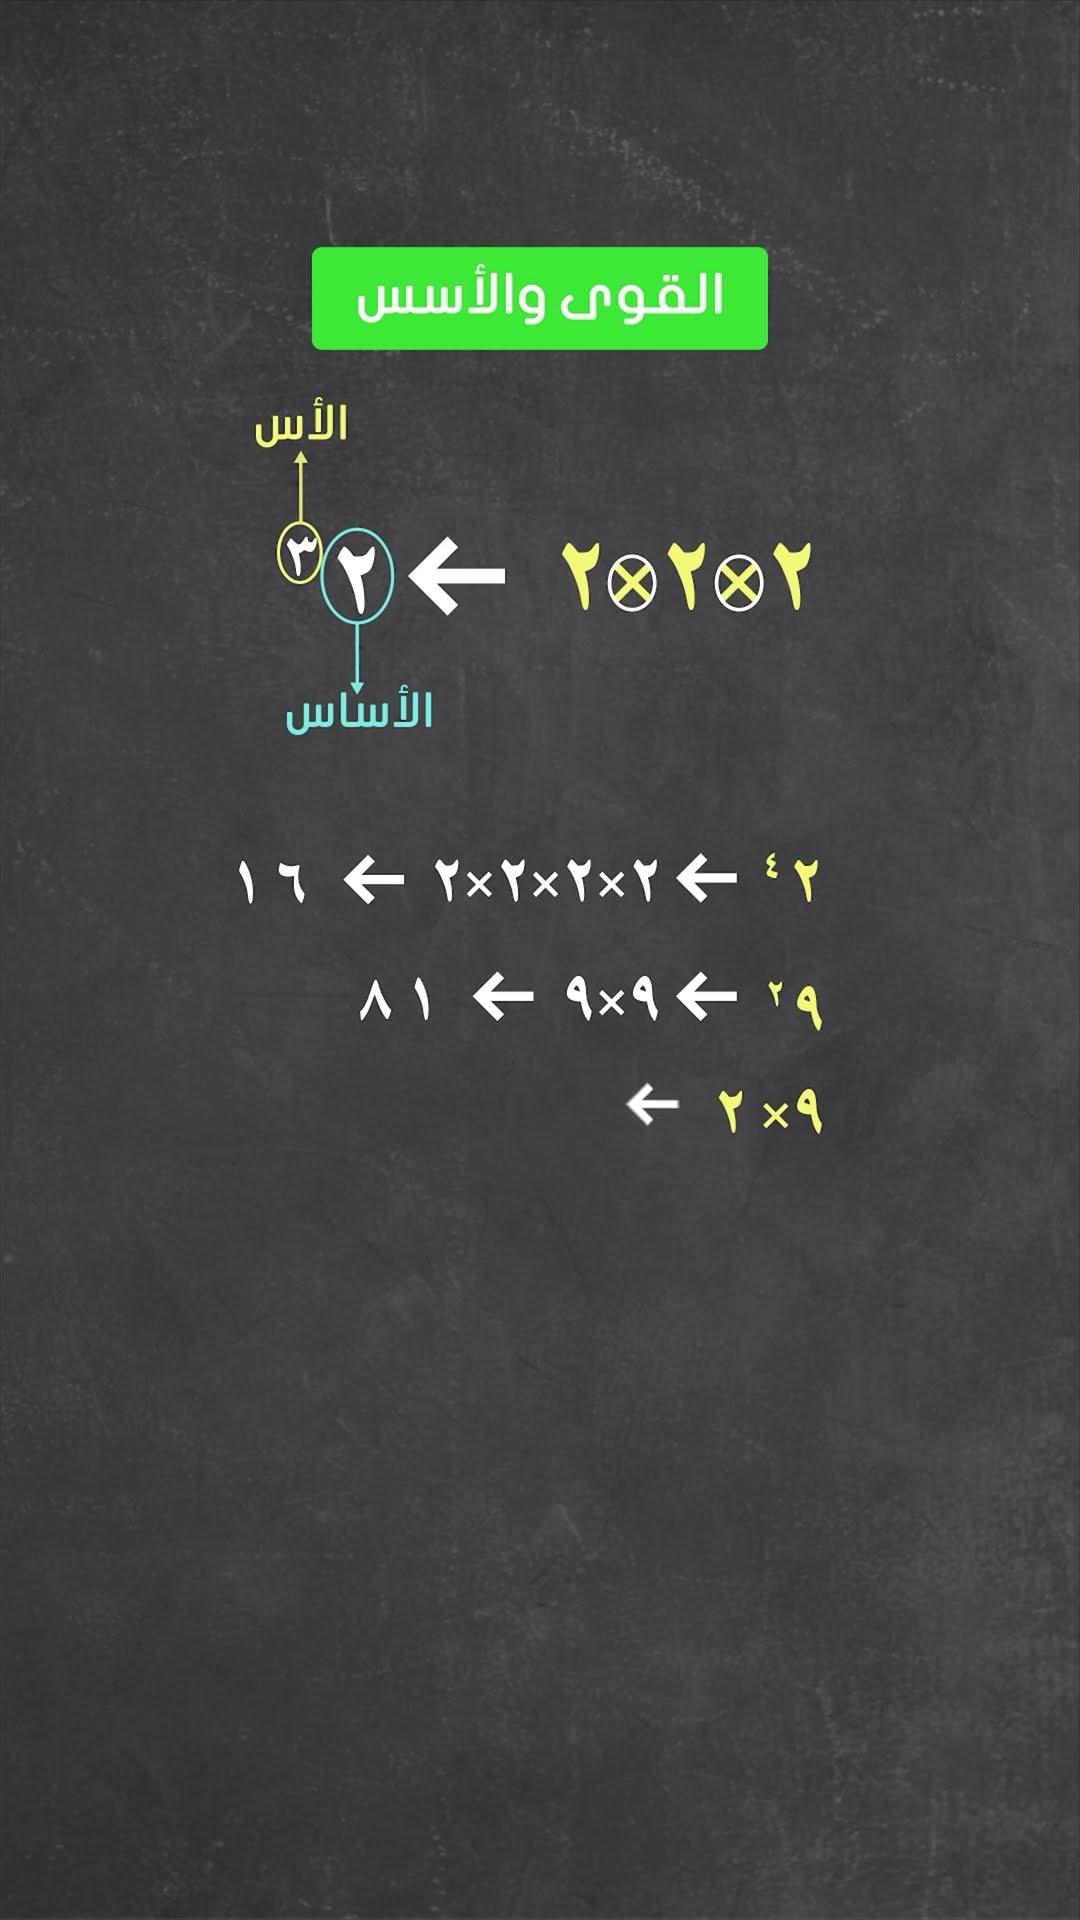 القوى والأسس
الأس
٢×٢×٢ ← ٢³
الأساس
٢⁴ ← ٢×٢×٢×٢ ← ١٦
٩² ← ٩×٩ ← ٨١
٩× ٢ ←